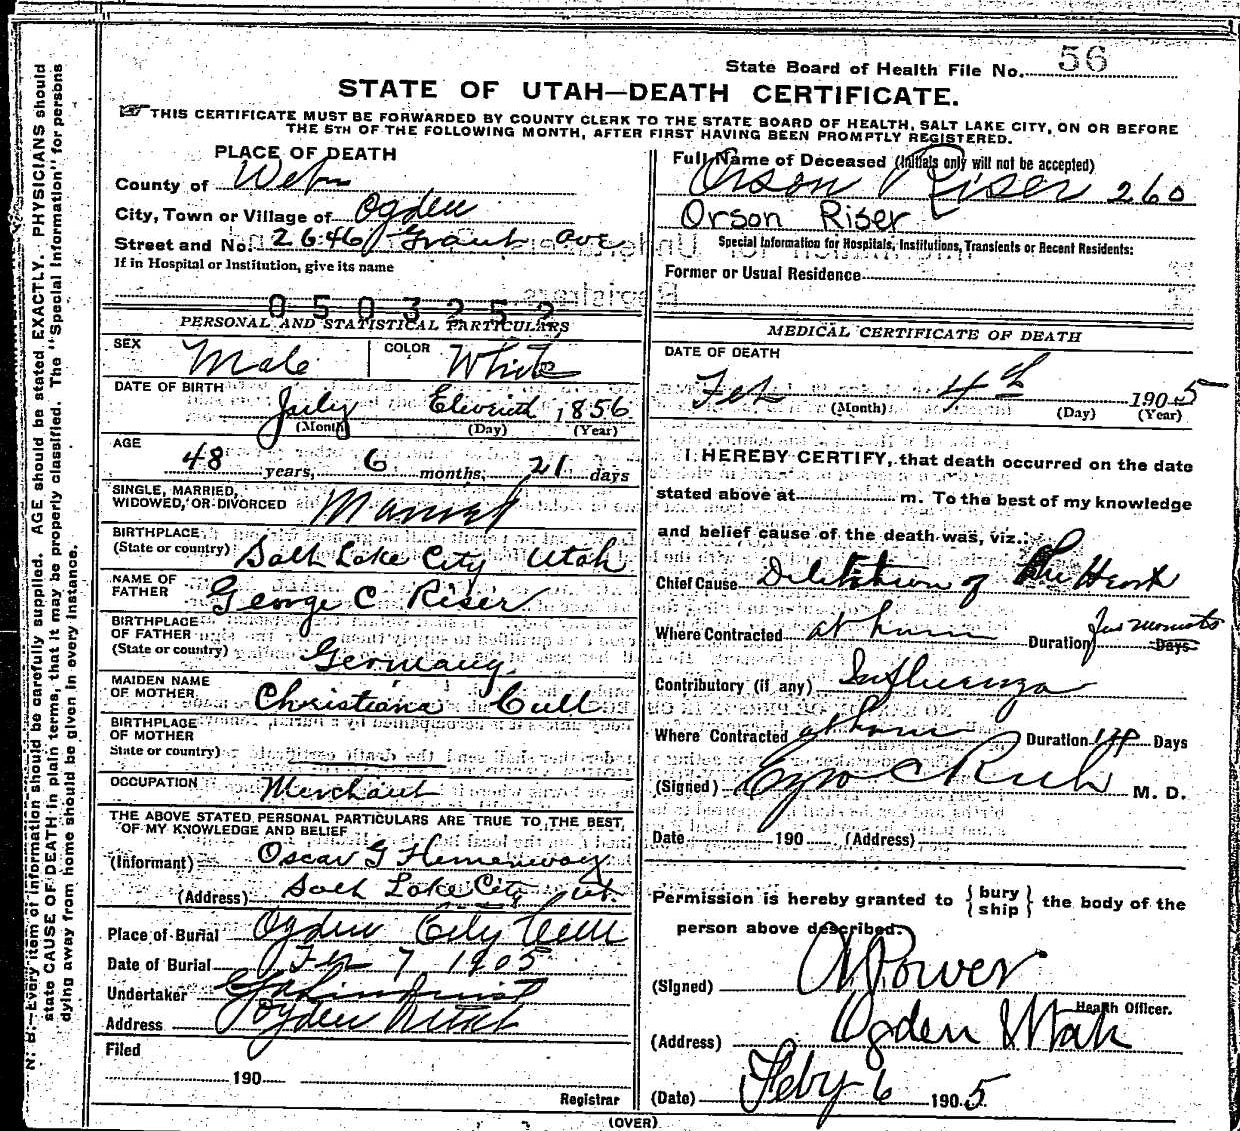 State Board of Health File No. 56
STATE OF UTAH—DEATH CERTIFICATE.
THIS CERTIFICATE MUST BE FORWARDED BY COUNTY CLERK TO THE STATE BOARD OF HEALTH, SALT LAKE CITY, ON OR BEFORE
THE 5TH OF THE FOLLOWING MONTH, AFTER FIRST HAVING BEEN PROMPTLY REGISTERED.
PLACE OF DEATH
County of Weber
City, Town or Village of Ogden
Street and No. 2646 Grant ave
If in Hospital or Institution, give its name
0503252
PERSONAL AND STATISTICAL PARTICULARS
SEX Male COLOR White
DATE OF BIRTH
July Eleventh 1856
(Month) (Day) (Year)
AGE
48 years, 6 months, 21 days
SINGLE, MARRIED,
WIDOWED, OR DIVORCED Married
BIRTHPLACE
(State or country) Salt Lake City Utah
NAME OF
FATHER George C Riser
BIRTHPLACE
OF FATHER
(State or country) Germany
MAIDEN NAME
OF MOTHER Christiana Cull
BIRTHPLACE
OF MOTHER
State or country)
OCCUPATION Merchant
THE ABOVE STATED PERSONAL PARTICULARS ARE TRUE TO THE BEST
OF MY KNOWLEDGE AND BELIEF
(Informant) Oscar G Hemenway
(Address) Salt Lake City Ut.
Place of Burial Ogden City Cem
Date of Burial Feb 7 1905
Undertaker
Address Ogden Utah
Filed
190
Registrar
Full Name of Deceased (Initials only will not be accepted)
Orson Riser 260
Orson Riser
Special Information for Hospitals, Institutions, Transients or Recent Residents:
Former or Usual Residence
MEDICAL CERTIFICATE OF DEATH
DATE OF DEATH
Feb 4th 1905
(Month) (Day) (Year)
I HEREBY CERTIFY, that death occurred on the date
stated above at m. To the best of my knowledge
and belief cause of the death was, viz.:
Chief Cause Dilitation of the Heart
Where Contracted at home Duration few moments Days
Contributory (if any) Influenza
Where Contracted at home Duration Days
(Signed) Ezra C Rich M. D.
Date 190 (Address)
Permission is hereby granted to {bury ship} the body of the
person above described.
(Signed) Power
Health Officer.
(Address) Ogden Utah
(Date) Feby 6 1905.
(OVER)
N. B.—Every item of information should be carefully supplied. AGE should be stated EXACTLY. PHYSICIANS should
state CAUSE OF DEATH in plain terms, that it may be properly classified. The "Special Information" for persons
dying away from home should be given in every instance.